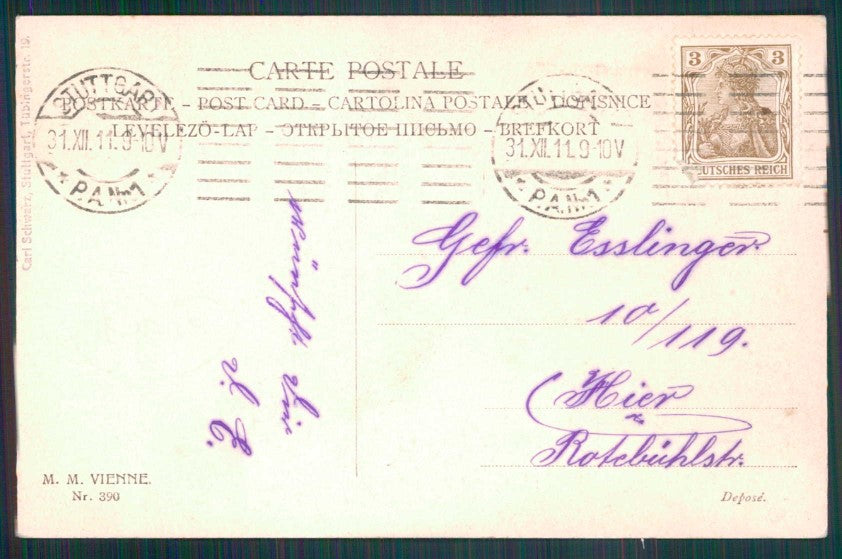 CARTE POSTALE
POSTKARTE – POST CARD – CARTOLINA POSTALE – DOPISNICE
LEVELEZÖ-LAP – ОТКРЫТОЕ ПИСЬМО – BREFKORT
STUTTGART
31.XII.11.9-10V
P.A.Nr.1
31.XII.11.9-10V
P.A.Nr.1
3 3
DEUTSCHES REICH
Carl Schwarz, Stuttgart, Tübingerstr. 19.
wünscht Dir
Gefr. Esslinger.
10/119.
Hier
Rotebühlstr.
M. M. VIENNE.
Nr. 390
Deposé.